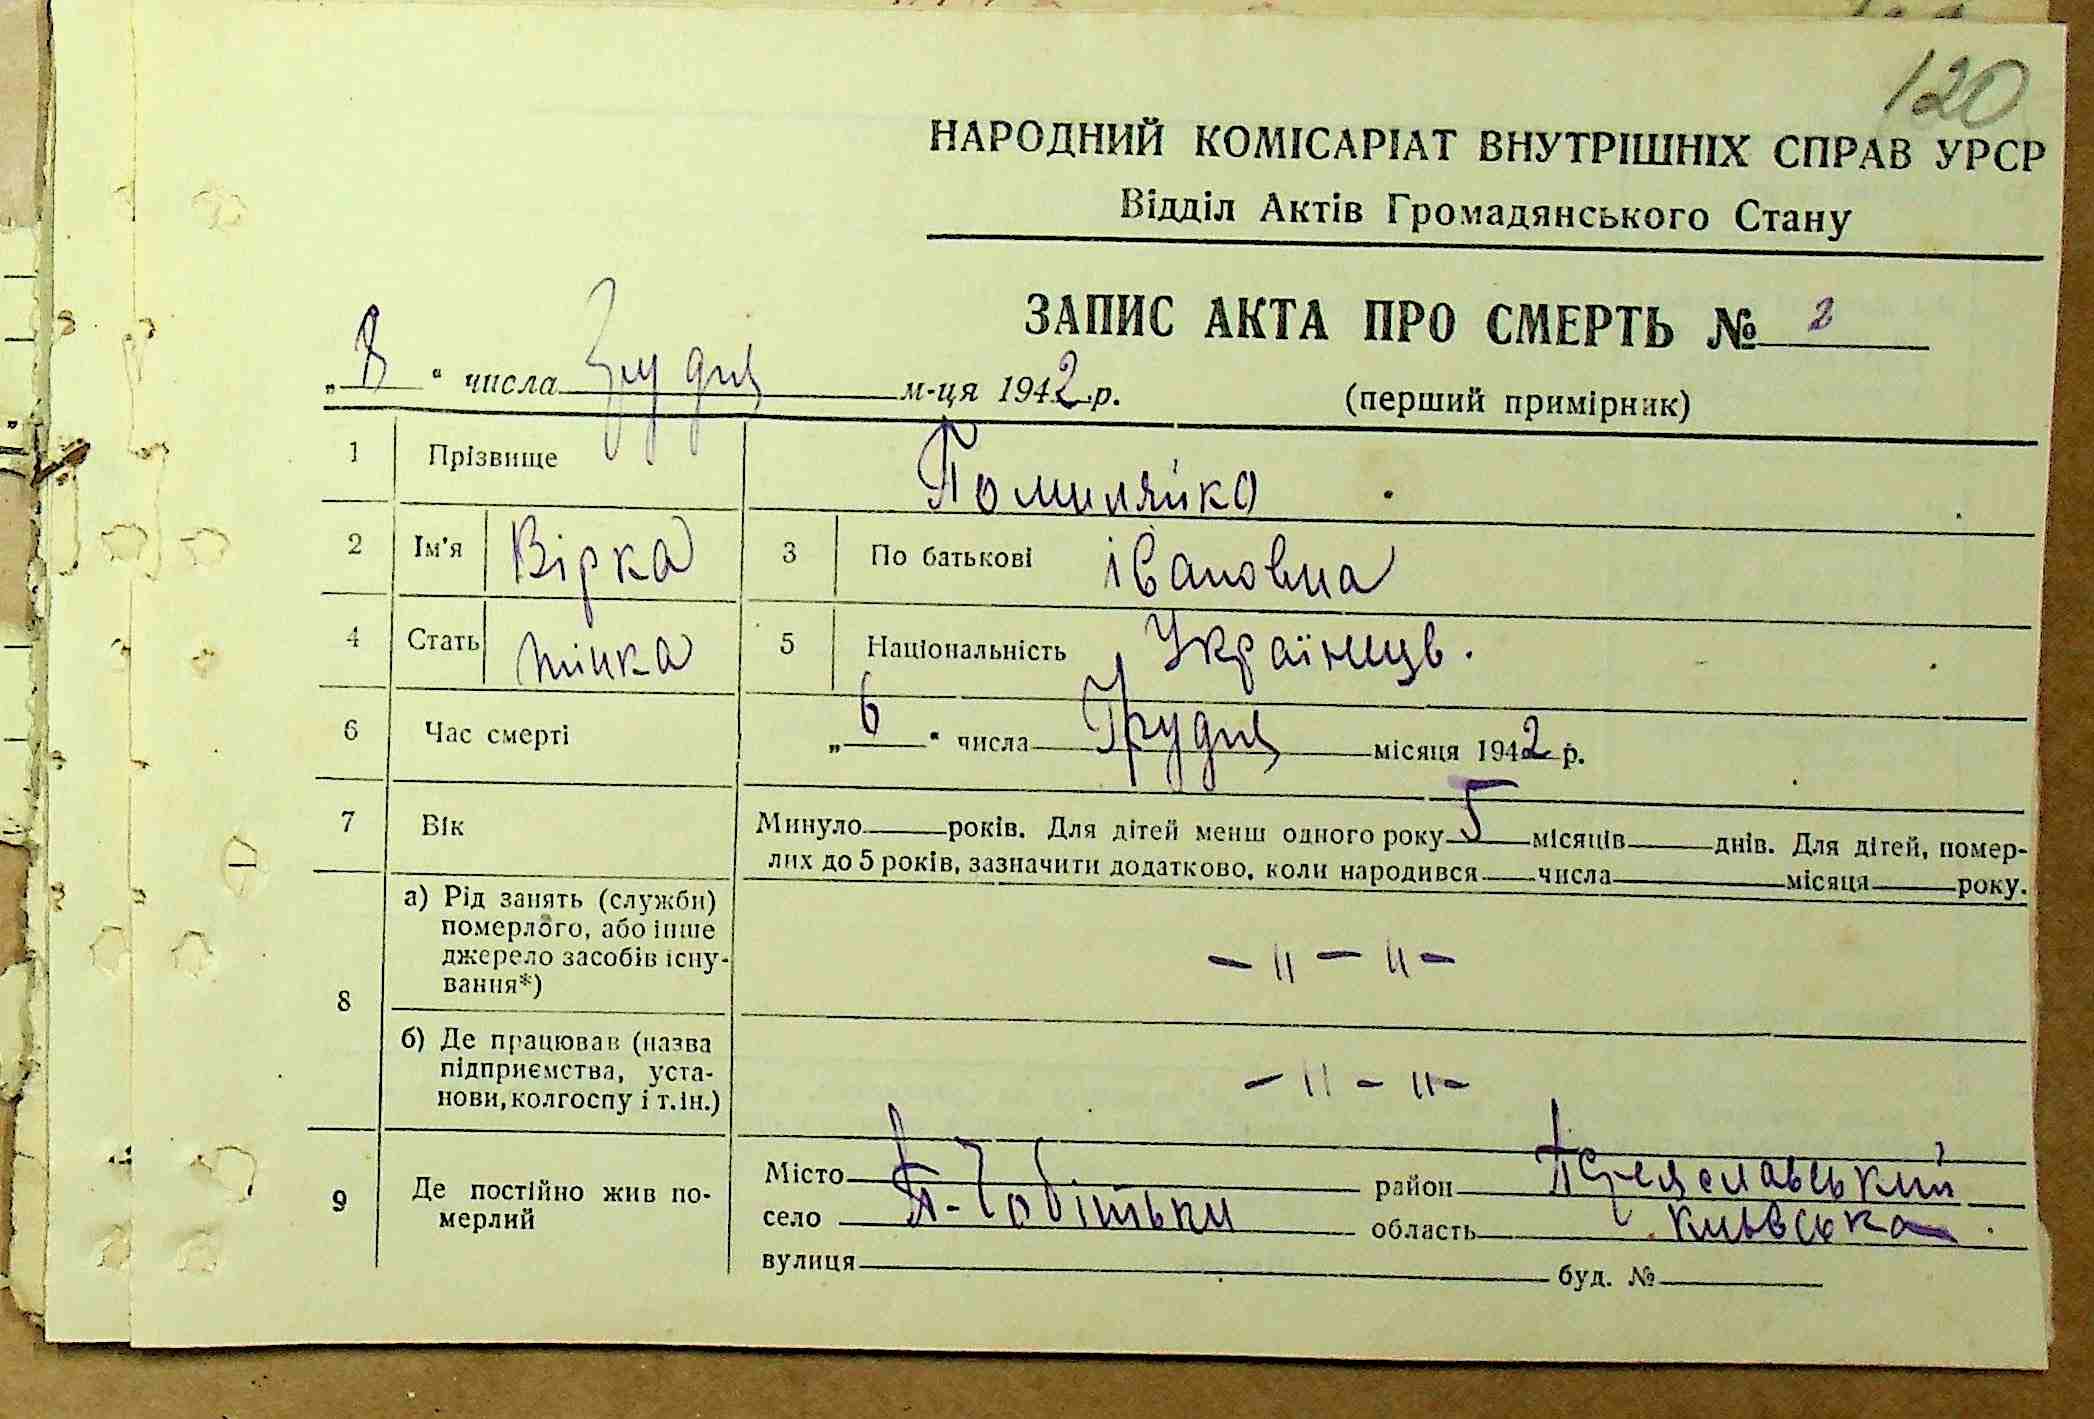 120
НАРОДНИЙ КОМІСАРІАТ ВНУТРІШНІХ СПРАВ УРСР
Відділ Актів Громадянського Стану
ЗАПИС АКТА ПРО СМЕРТЬ № 2
„8“ числа Грудня м-ця 1942 р.
(перший примірник)
1 Прізвище Помиляйко
2 Ім'я Вірка 3 По батькові івановна
4 Стать жінка 5 Національність Українців.
6 Час смерті „6“ числа Грудня місяця 1942 р.
7 Вік Минуло років. Для дітей менш одного року 5 місяців днів. Для дітей, помер-
лих до 5 років, зазначити додатково, коли народився числа місяця року.
8 а) Рід занять (служби)
померлого, або інше
джерело засобів існу-
вання*)
– 〃 – 〃 –
б) Де працював (назва
підприємства, уста-
нови, колгоспу і т.ін.)
– 〃 – 〃 –
9 Де постійно жив по-
мерлий
Місто район Переяславський
село П-Чобітьки область Київська
вулиця буд. №